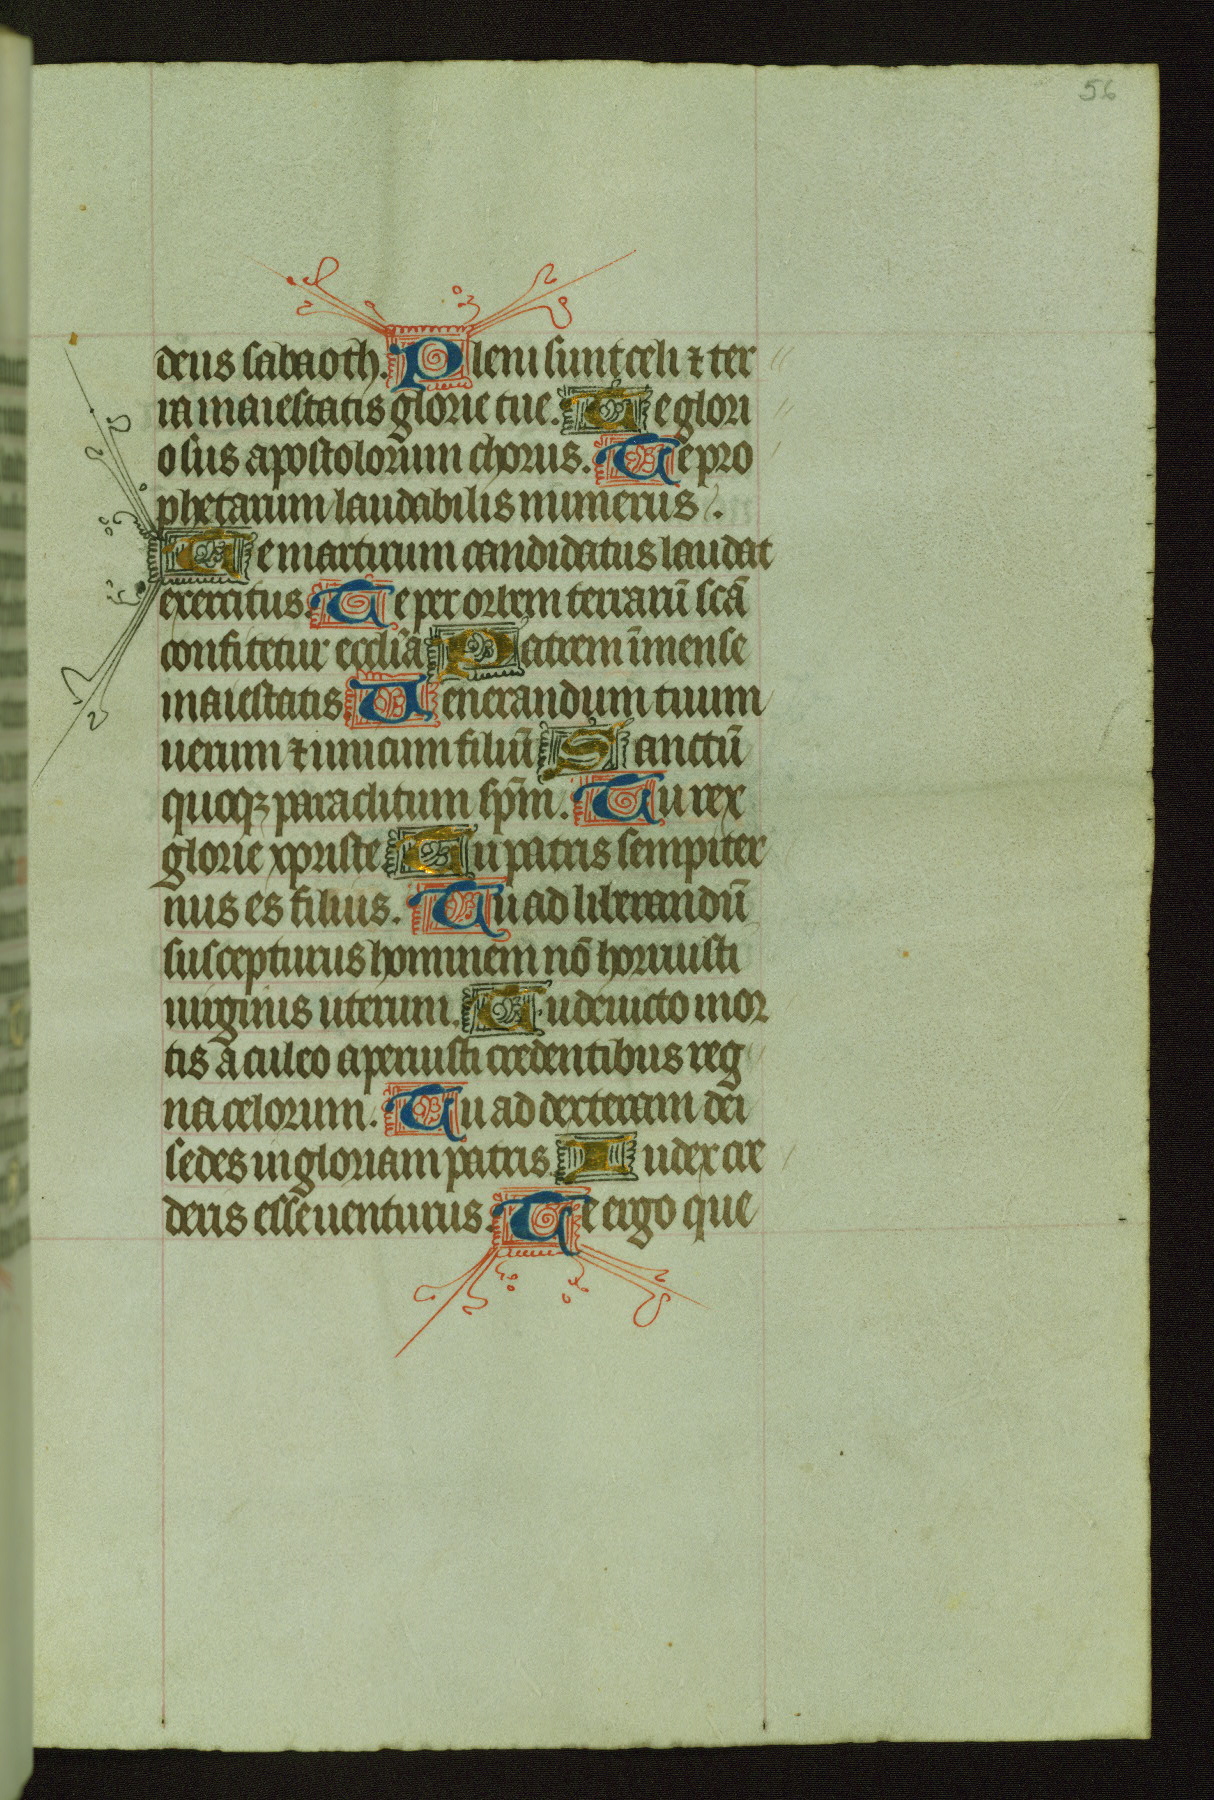 56
deus sabaoth. Pleni sunt celi ⁊ ter
ra maiestatis glorie tue. Te glori
osus apostolorum chorus. Te pro
phetarum laudabilis numerus.
Te martirum candidatus laudat
exercitus. Te per orbem terrarū scā
confitetur eccl̄ia Patrem īmense
maiestatis Venerandum tuum
uerum ⁊ unicum filiū Sanctū
quoqꝫ paraclitum sp̄m. Tu rex
glorie xpriste Tu patris sempiter
nus es filius. Tu ad liberandū
suscepturus hominem nō horruisti
uirginis uterum. Tu deuicto mor
tis aculeo aperuisti credentibus reg
na celorum. Tu ad dexteram dei
sedes in gloriam patris. Iudex cre
deris esse uenturus. Te ergo que